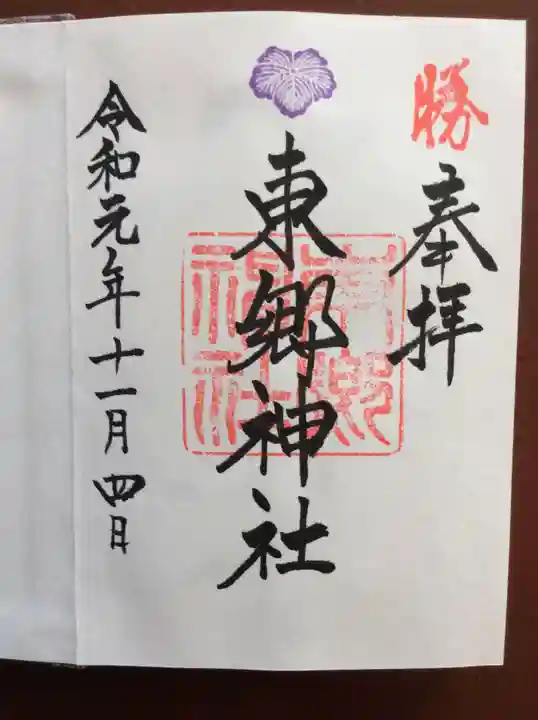 勝
奉拝
東郷神社
東郷神社
令和元年十一月四日